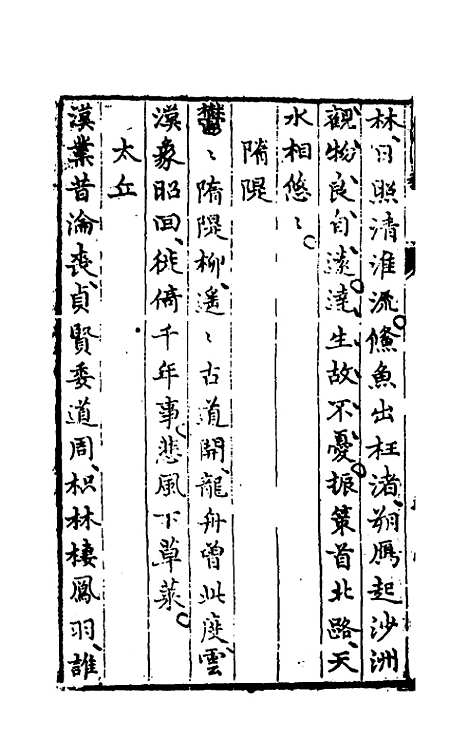 林、日照清淮流。鯈魚出枉渚、朔鴈起沙洲
觀物良自遠、達生故不憂。振策首北路、天
水相悠〻。
隋隄
鬱〻隋隄柳、遥〻古道開、龍舟曾此度、雲
漢象昭回、徙倚千年事、悲風下草萊。
太丘
漢業昔淪喪、貞賢委道周、枳林棲鳳羽、誰